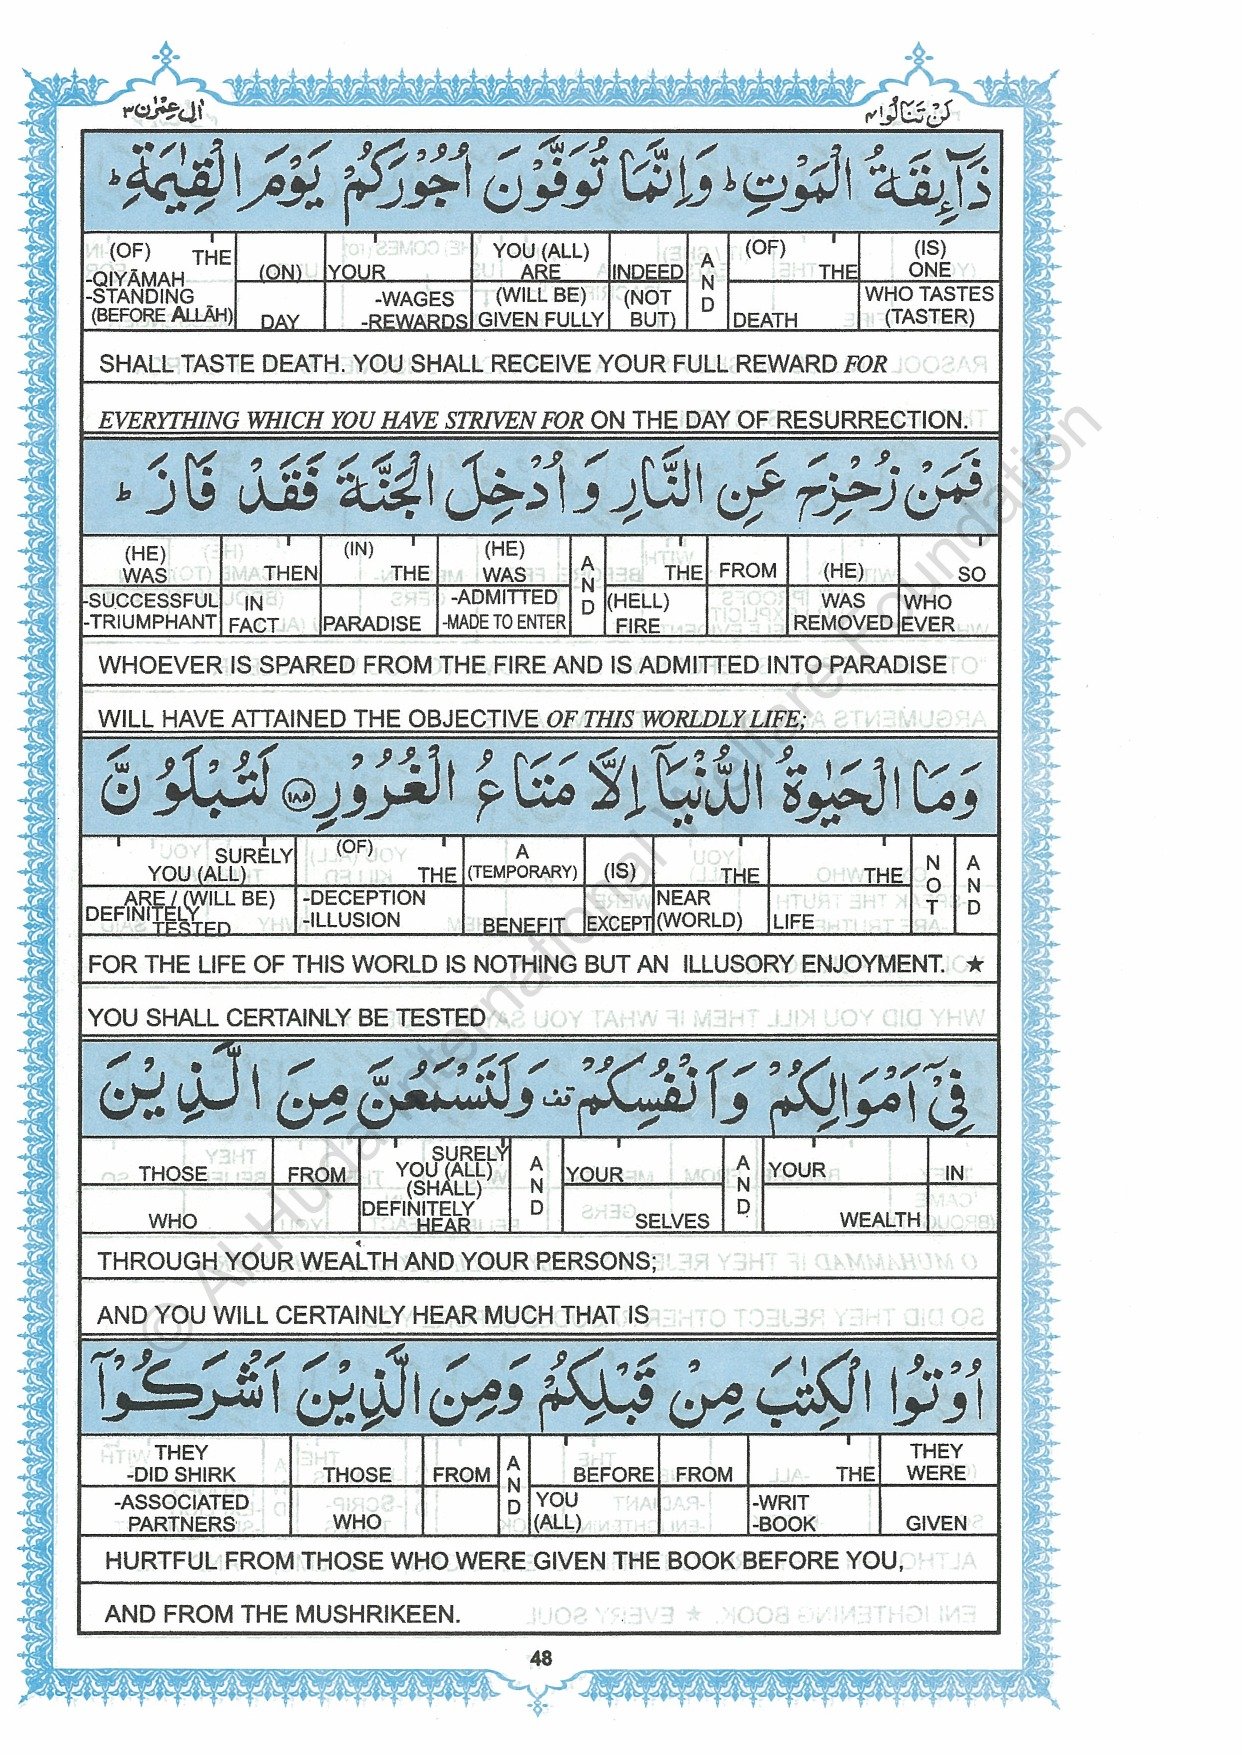 اٰل عِمْرٰن ۳
لَنْ تَنَالُوا ۴
ذَآئِقَةُ الْمَوْتِ ؕ وَاِنَّمَا تُوَفَّوْنَ اُجُوْرَكُمْ يَوْمَ الْقِيٰمَةِ ؕ
(OF) THE -QIYĀMAH -STANDING (BEFORE ALLĀH) | (ON) DAY | YOUR -WAGES -REWARDS | YOU (ALL) ARE (WILL BE) GIVEN FULLY | INDEED (NOT BUT) | AND | (OF) THE DEATH | (IS) ONE WHO TASTES (TASTER)
SHALL TASTE DEATH. YOU SHALL RECEIVE YOUR FULL REWARD FOR
EVERYTHING WHICH YOU HAVE STRIVEN FOR ON THE DAY OF RESURRECTION.
فَمَنْ زُحْزِحَ عَنِ النَّارِ وَ اُدْخِلَ الْجَنَّةَ فَقَدْ فَازَ ؕ
(HE) WAS -SUCCESSFUL -TRIUMPHANT | THEN IN FACT | (IN) THE PARADISE | (HE) WAS -ADMITTED -MADE TO ENTER | AND | THE (HELL) FIRE | FROM | (HE) WAS REMOVED | SO WHO EVER
WHOEVER IS SPARED FROM THE FIRE AND IS ADMITTED INTO PARADISE
WILL HAVE ATTAINED THE OBJECTIVE OF THIS WORLDLY LIFE;
وَ مَا الْحَيٰوةُ الدُّنْيَآ اِلَّا مَتَاعُ الْغُرُوْرِ ۱۸۵ لَتُبْلَوُنَّ
SURELY YOU (ALL) ARE / (WILL BE) DEFINITELY TESTED | (OF) THE -DECEPTION -ILLUSION | A (TEMPORARY) BENEFIT | (IS) EXCEPT | THE NEAR (WORLD) | THE LIFE | NOT | AND
FOR THE LIFE OF THIS WORLD IS NOTHING BUT AN ILLUSORY ENJOYMENT. ★
YOU SHALL CERTAINLY BE TESTED
فِيْٓ اَمْوَالِكُمْ وَ اَنْفُسِكُمْ قف وَلَتَسْمَعُنَّ مِنَ الَّذِيْنَ
THOSE WHO | FROM | SURELY YOU (ALL) (SHALL) DEFINITELY HEAR | AND | YOUR SELVES | AND | YOUR WEALTH | IN
THROUGH YOUR WEALTH AND YOUR PERSONS;
AND YOU WILL CERTAINLY HEAR MUCH THAT IS
اُوْتُوا الْكِتٰبَ مِنْ قَبْلِكُمْ وَمِنَ الَّذِيْنَ اَشْرَكُوْٓا
THEY -DID SHIRK -ASSOCIATED PARTNERS | THOSE WHO | FROM | AND | BEFORE YOU (ALL) | FROM | THE -WRIT -BOOK | THEY WERE GIVEN
HURTFUL FROM THOSE WHO WERE GIVEN THE BOOK BEFORE YOU,
AND FROM THE MUSHRIKEEN.
48
© Al-Huda International Welfare Foundation